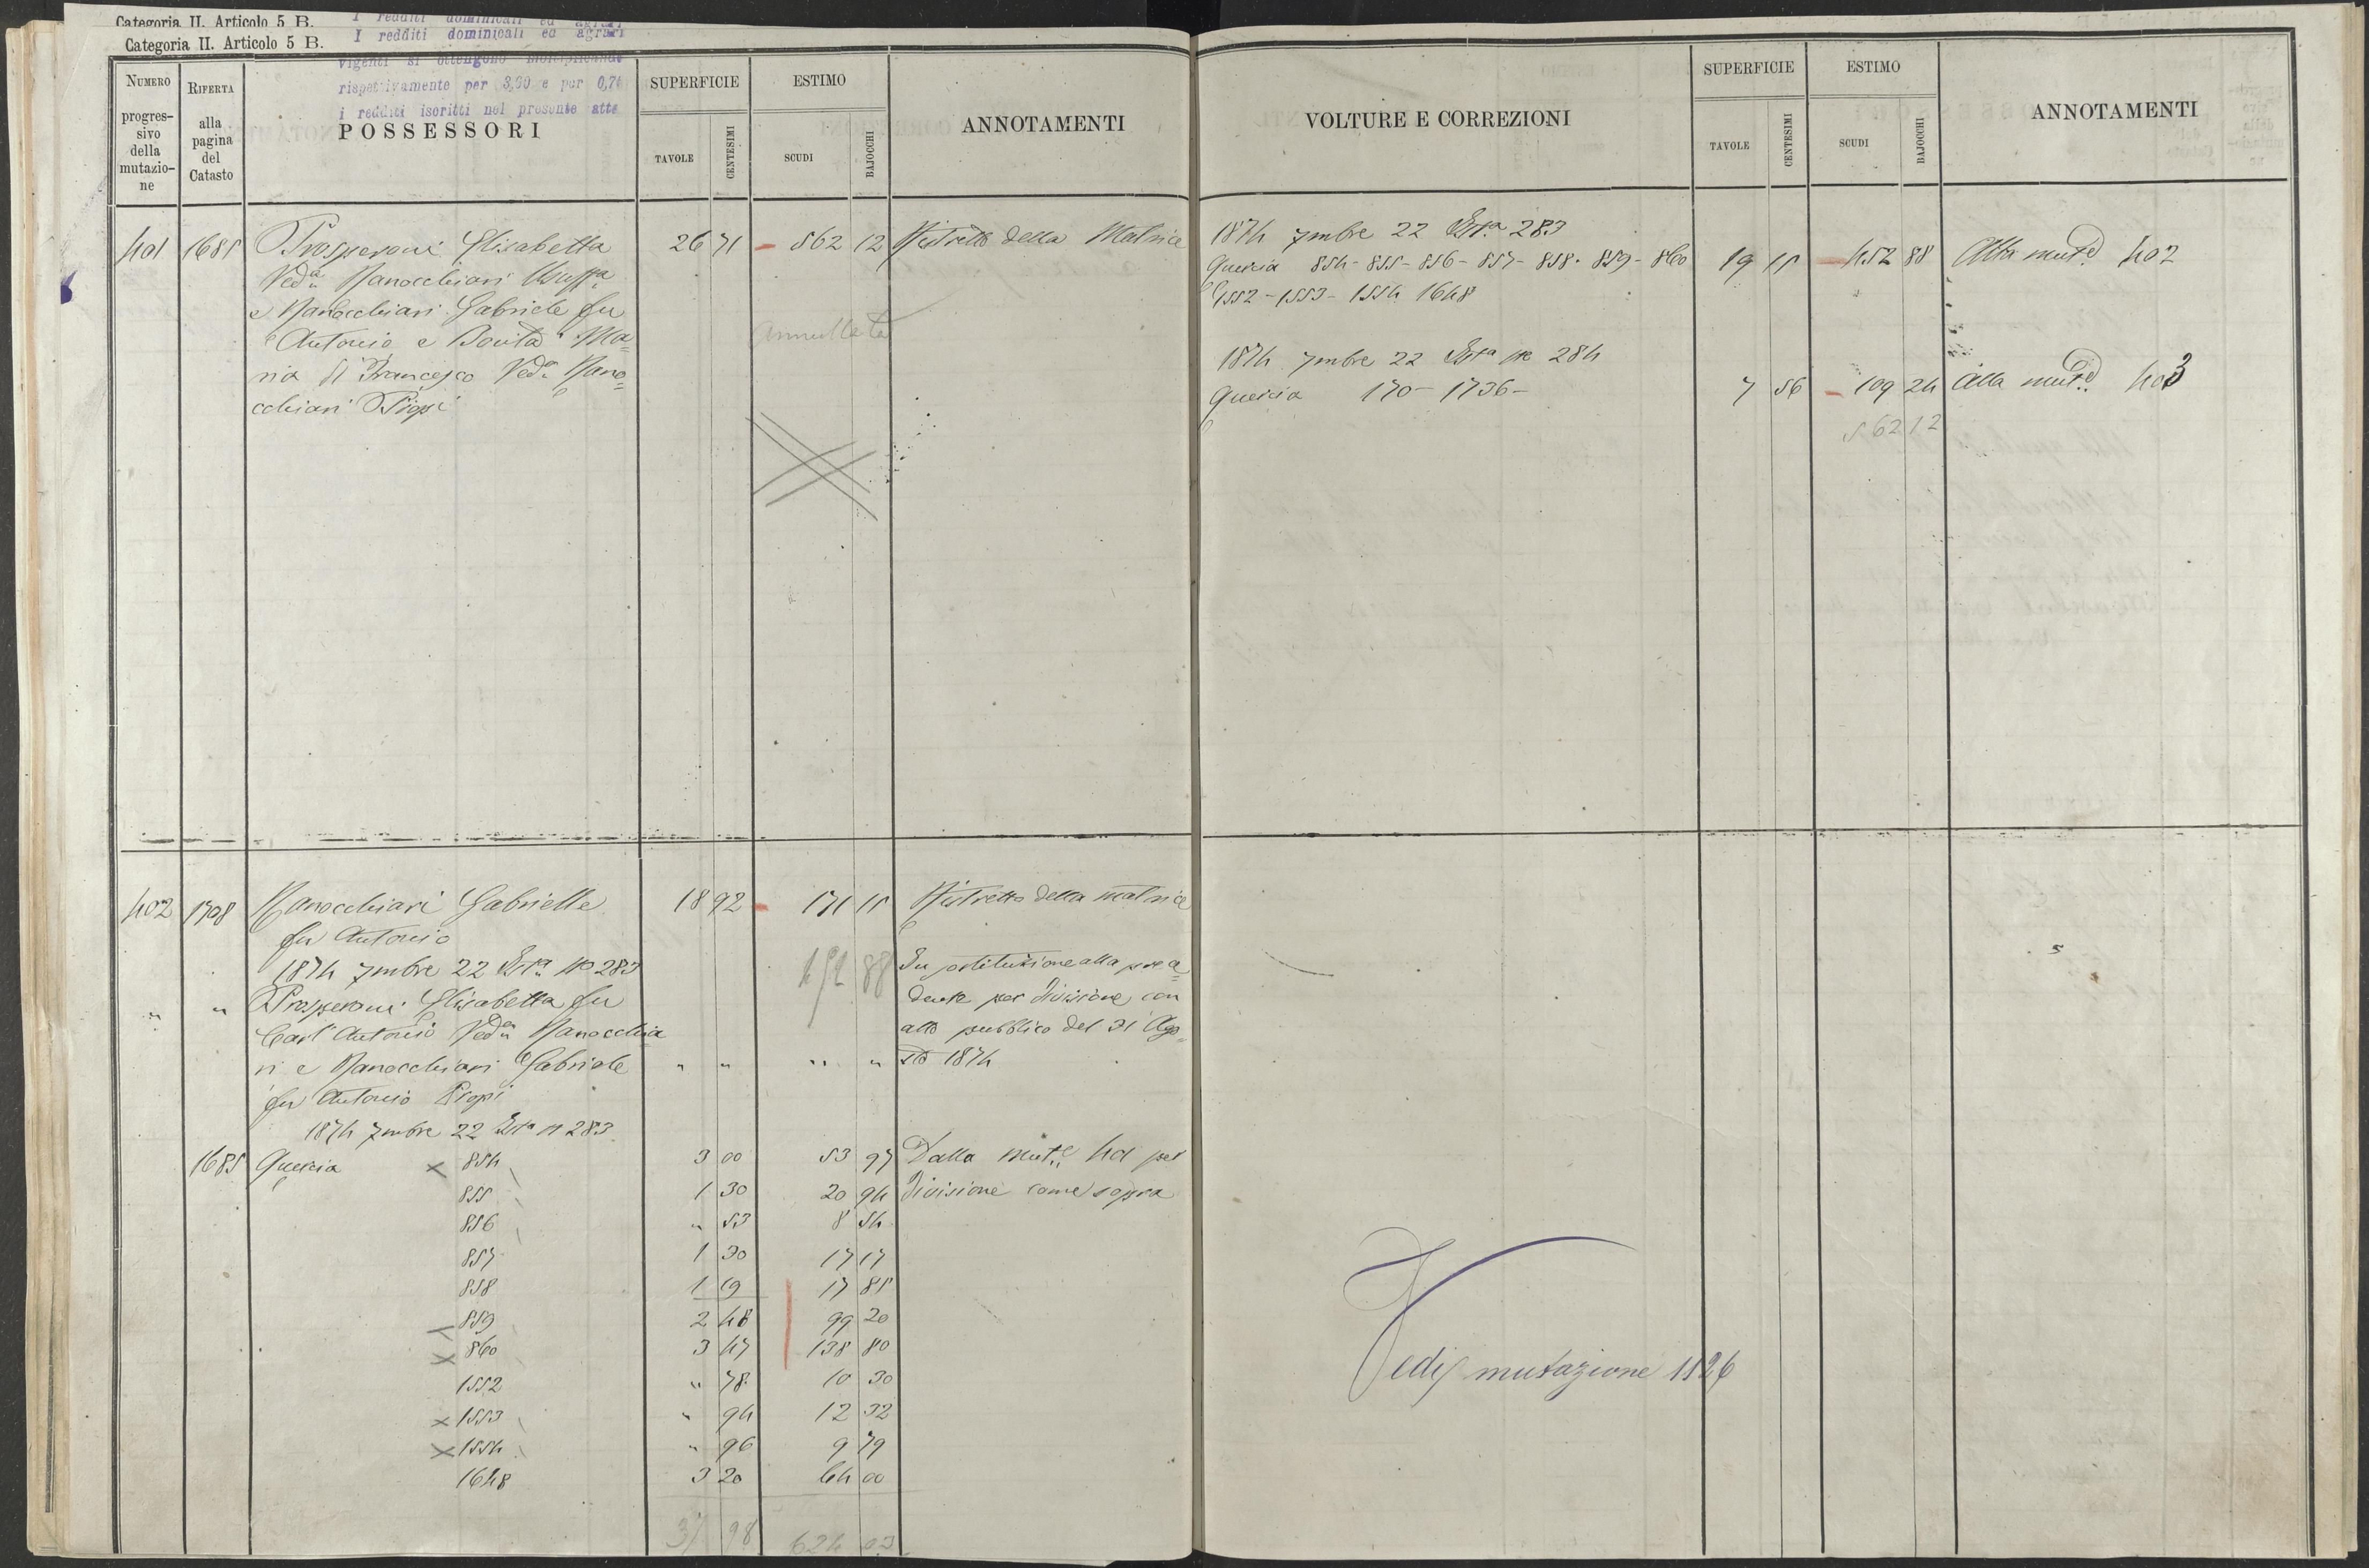 Categoria II. Articolo 5 B.
Categoria II. Articolo 5 B.
I redditi dominicali ed agrari
I redditi dominicali ed agrari
vigenti si ottengono moltiplicando
rispettivamente per 3,90 e per 0,7
i redditi iscritti nel presente atto
NUMERO progres-sivo della mutazio-ne
RIFERTA alla pagina del Catasto
POSSESSORI
SUPERFICIE
TAVOLE
CENTESIMI
ESTIMO
SCUDI
BAJOCCHI
ANNOTAMENTI
VOLTURE E CORREZIONI
SUPERFICIE
TAVOLE
CENTESIMI
ESTIMO
SCUDI
BAJOCCHI
ANNOTAMENTI
401 1685 Prosperoni Elisabetta 26 71 562 12 Ristretto della Matrice
Ved.a Manocchiari
e Manocchiari Gabriele fu
Antonio e Bonita Ma=
ria di Francesco Ved.a Mano=
cchiari
Annullata
1874 7mbre 22 283
Quercia 854 - 855 - 856 - 857 - 858 - 859 - 860 19 15 452 88 Alla mut.e 402
1552 - 1553 - 1554 1648
1874 7mbre 22 N 284
Quercia 170 - 1736 - 7 56 109 24 Alla mut.e 403
562 12
402 1708 Manocchiari Gabrielle 18 92 171 15 Ristretto della matrice
fu Antonio
1874 7mbre 22 N 283 452 88
In sostituzione alla prece=
" " Prosperoni Elisabetta fu dente per divisione con
Carl'Antonio Ved.a Manocchia atto pubblico del 31 Ago=
ri e Manocchiari Gabriele " " " " sto 1874
fu Antonio
1874 7mbre 22 N 283
1685 Quercia 854 3 00 53 97 Dalla Mut.e 401 per
855 1 30 20 94 divisione come sopra
856 " 53 8 54
857 1 30 17 17
858 1 19 17 85
859 2 48 99 20
860 3 47 138 80
1552 " 78 10 30
1553 " 94 12 32
1554 " 96 9 79
1648 3 20 64 00
37 98 624 03
Vedi mutazione 1826